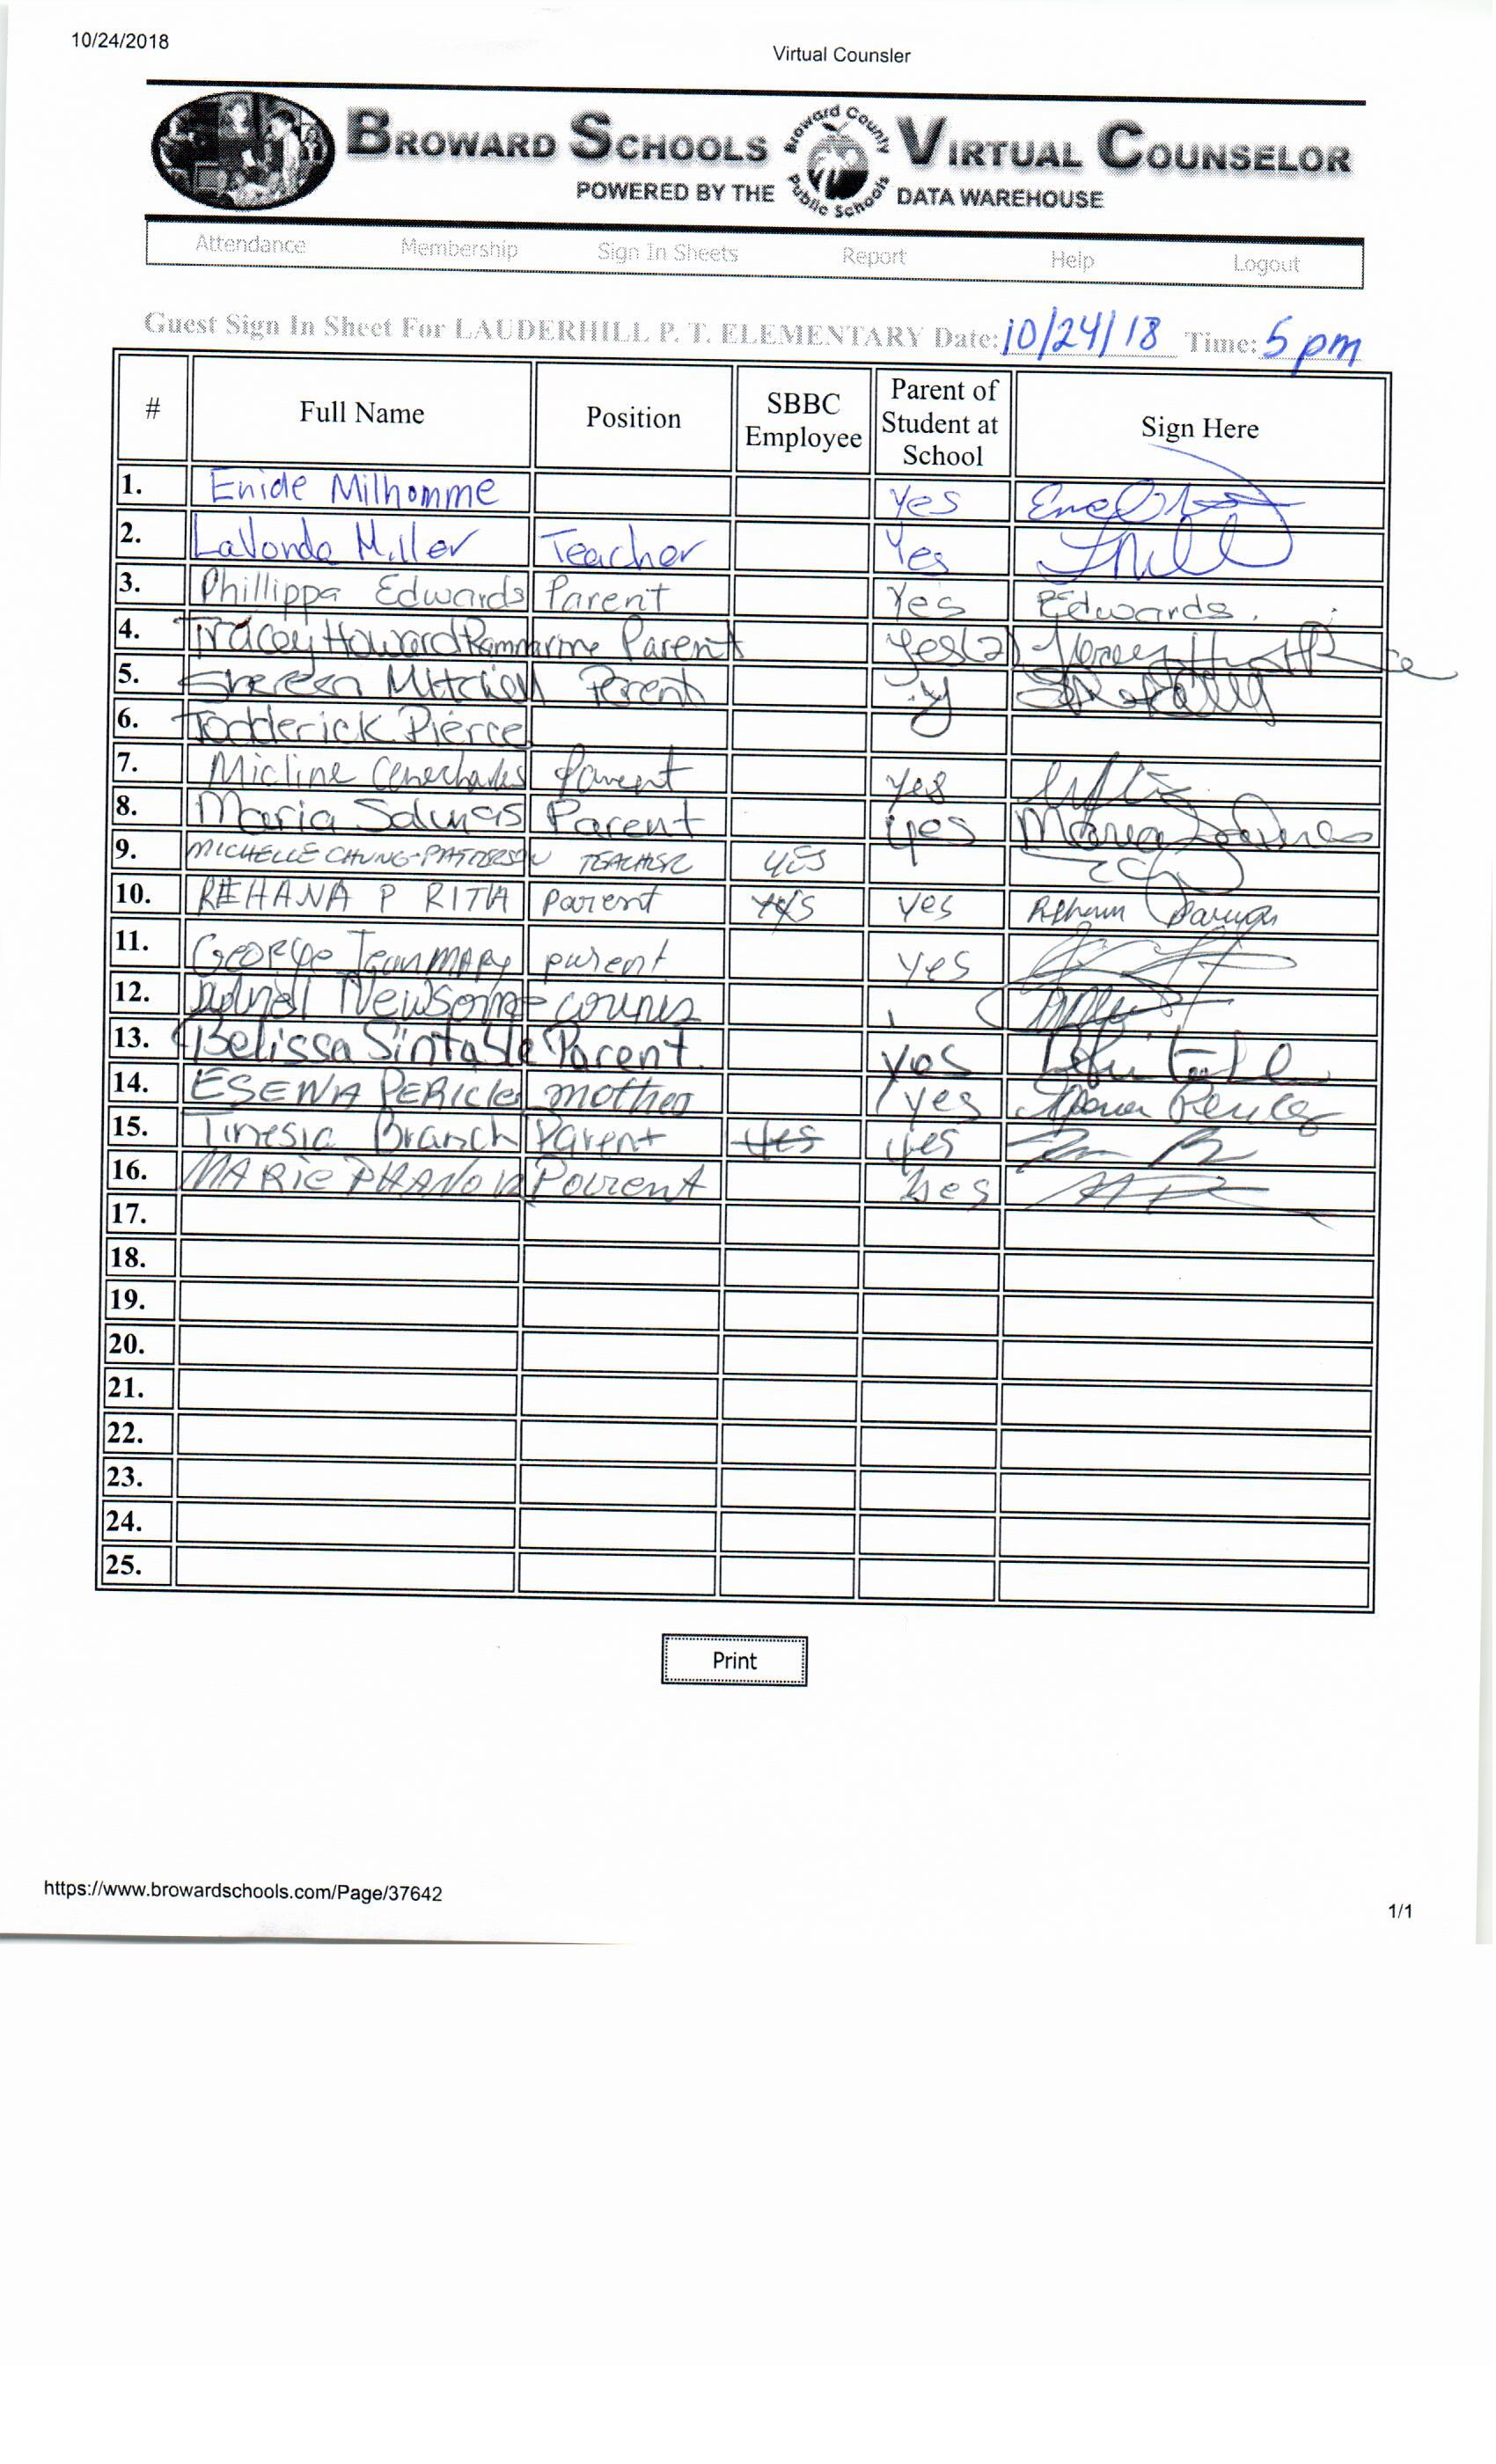 10/24/2018
Virtual Counsler
BROWARD SCHOOLS VIRTUAL COUNSELOR
Broward County Public Schools
POWERED BY THE DATA WAREHOUSE
Attendance Membership Sign In Sheets Report Help Logout
Guest Sign In Sheet For LAUDERHILL P. T. ELEMENTARY Date: 10/24/18 Time: 5 pm
# Full Name Position SBBC Employee Parent of Student at School Sign Here
1. Enide Milhomme Yes
2. LaVonda Miller Teacher Yes
3. Phillippa Edwards Parent Yes Edwards.
4. Tracey Howard Ramnarine Parent Yes(2)
5. Shereen Mitchell Parent y
6. Todderick Pierce
7. Micline Parent yes
8. Maria Salinas Parent yes Maria Salinas
9. MICHELLE CHUNG-PATTERSON TEACHER YES
10. REHANA P RITA parent yes yes Rehana
11. George JeanMary parent yes
12. Newsome
13. Belissa Parent. yes
14. ESEWA PERICLES mother yes
15. Tinesia Branch Parent yes yes
16. MARIE Parent yes
17.
18.
19.
20.
21.
22.
23.
24.
25.
Print
https://www.browardschools.com/Page/37642
1/1